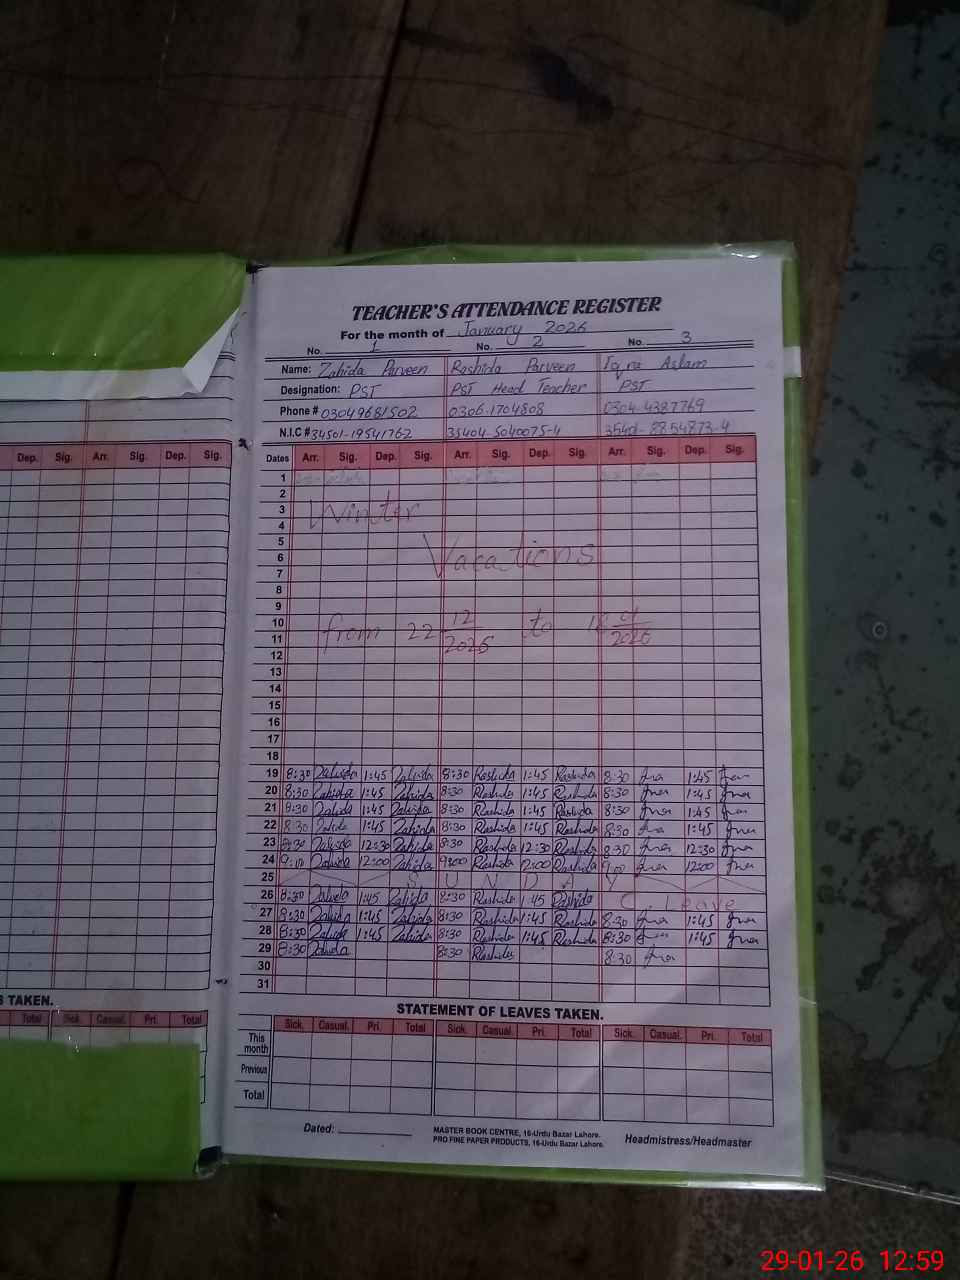 TEACHER'S ATTENDANCE REGISTER
For the month of January 2026
No. 1 No. 2 No. 3
Name: Zahida Parveen Rashida Parveen Iqra Aslam
Designation: PST PST Head Teacher PST
Phone # 03049681502 0306-1704808 0304-4387769
N.I.C # 34501-19541762 35404-5040075-4 35401-8854873-4
Dep. Sig. Arr. Sig. Dep. Sig.
Dates Arr. Sig. Dep. Sig. Arr. Sig. Dep. Sig. Arr. Sig. Dep. Sig.
1
2
3 Winter
4
5
6 Vacations
7
8
9
10 from 22 12/2025 to 01/2026
11
12
13
14
15
16
17
18
19 8:30 Zahida 1:45 Zahida 8:30 Rashida 1:45 Rashida 8:30 1:45
20 8:30 Zahida 1:45 Zahida 8:30 Rashida 1:45 Rashida 8:30 1:45
21 8:30 Zahida 1:45 Zahida 8:30 Rashida 1:45 Rashida 8:30 1:45
22 8:30 Zahida 1:45 Zahida 8:30 Rashida 1:45 Rashida 8:30 1:45
23 8:30 Zahida 12:30 Zahida 8:30 Rashida 12:30 Rashida 8:30 12:30
24 9:00 Zahida 12:00 Zahida 9:00 Rashida 12:00 Rashida 9:00 12:00
25 S U N D A Y
26 8:30 Zahida 1:45 Zahida 8:30 Rashida 1:45 Rashida C. Leave
27 8:30 Zahida 1:45 Zahida 8:30 Rashida 1:45 Rashida 8:30 1:45
28 8:30 Zahida 1:45 Zahida 8:30 Rashida 1:45 Rashida 8:30 1:45
29 8:30 Zahida 8:30 Rashida 8:30
30
31
S TAKEN.
STATEMENT OF LEAVES TAKEN.
Total Sick. Casual. Pri. Total
Sick. Casual. Pri. Total Sick. Casual. Pri. Total Sick. Casual. Pri. Total
This month
Previous
Total
Dated:
MASTER BOOK CENTRE, 16-Urdu Bazar Lahore.
PRO FINE PAPER PRODUCTS, 16-Urdu Bazar Lahore.
Headmistress/Headmaster
29-01-26 12:59